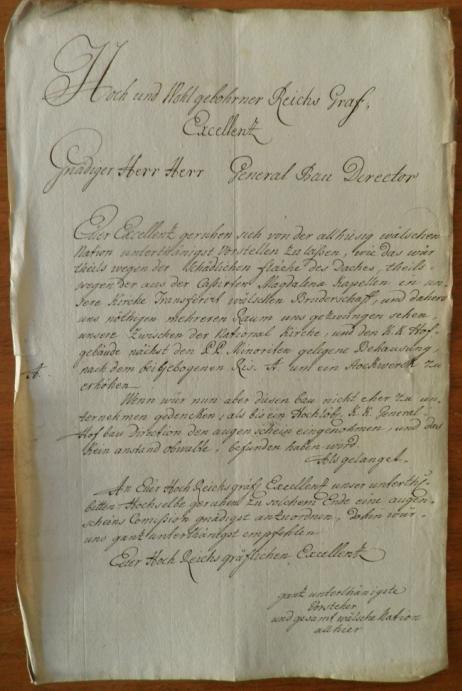 Hoch und Wohl gebohrner Reichs Graf,
Excellentz
Gnädiger Herr Herr General Bau Director
Euer Excellentz geruhen sich von der allhiesig wälschen
Nation unterthänigst Vorstellen zu laßen, wie das wür
theils wegen der schädlichen fläche des daches, theils
wegen der aus der Magdalena Kapellen in un-
sere Kirche Transferirt wälschen Bruderschaft, und dahero
uns nöthigen mehreren Raum uns gezwungen sehen,
unsere zwischen der National Kirche, und den K. K. Hof-
gebäude nächst den P.P. Minoriten gelegene Behausung,
nach dem beÿgebogenen Ris. A. um ein Stockwerck zu
erhöhen
A.
Wenn wür nun aber diesen bau nicht eher zu un-
ternehmen gedencken, als bis ein Hochlöb. K. K. General
Hof bau Direction den augenschein eingenohmen, und das
kein anstand obwalte, befunden haben wird.
Als gelanget.
An Euer Hoch Reichs gräf. Excellentz unser unterth.
bitten Hochselbe geruhen zu solchem Ende eine augen-
scheins Comission gnädigst anzuordnen, dahin wür
uns gantz unterthänigst empfehlen
Euer Hoch Reichs gräflichen Excellentz
gantz unterthänigste
Vorsteher
und gesamt wälsche Nation
allhier